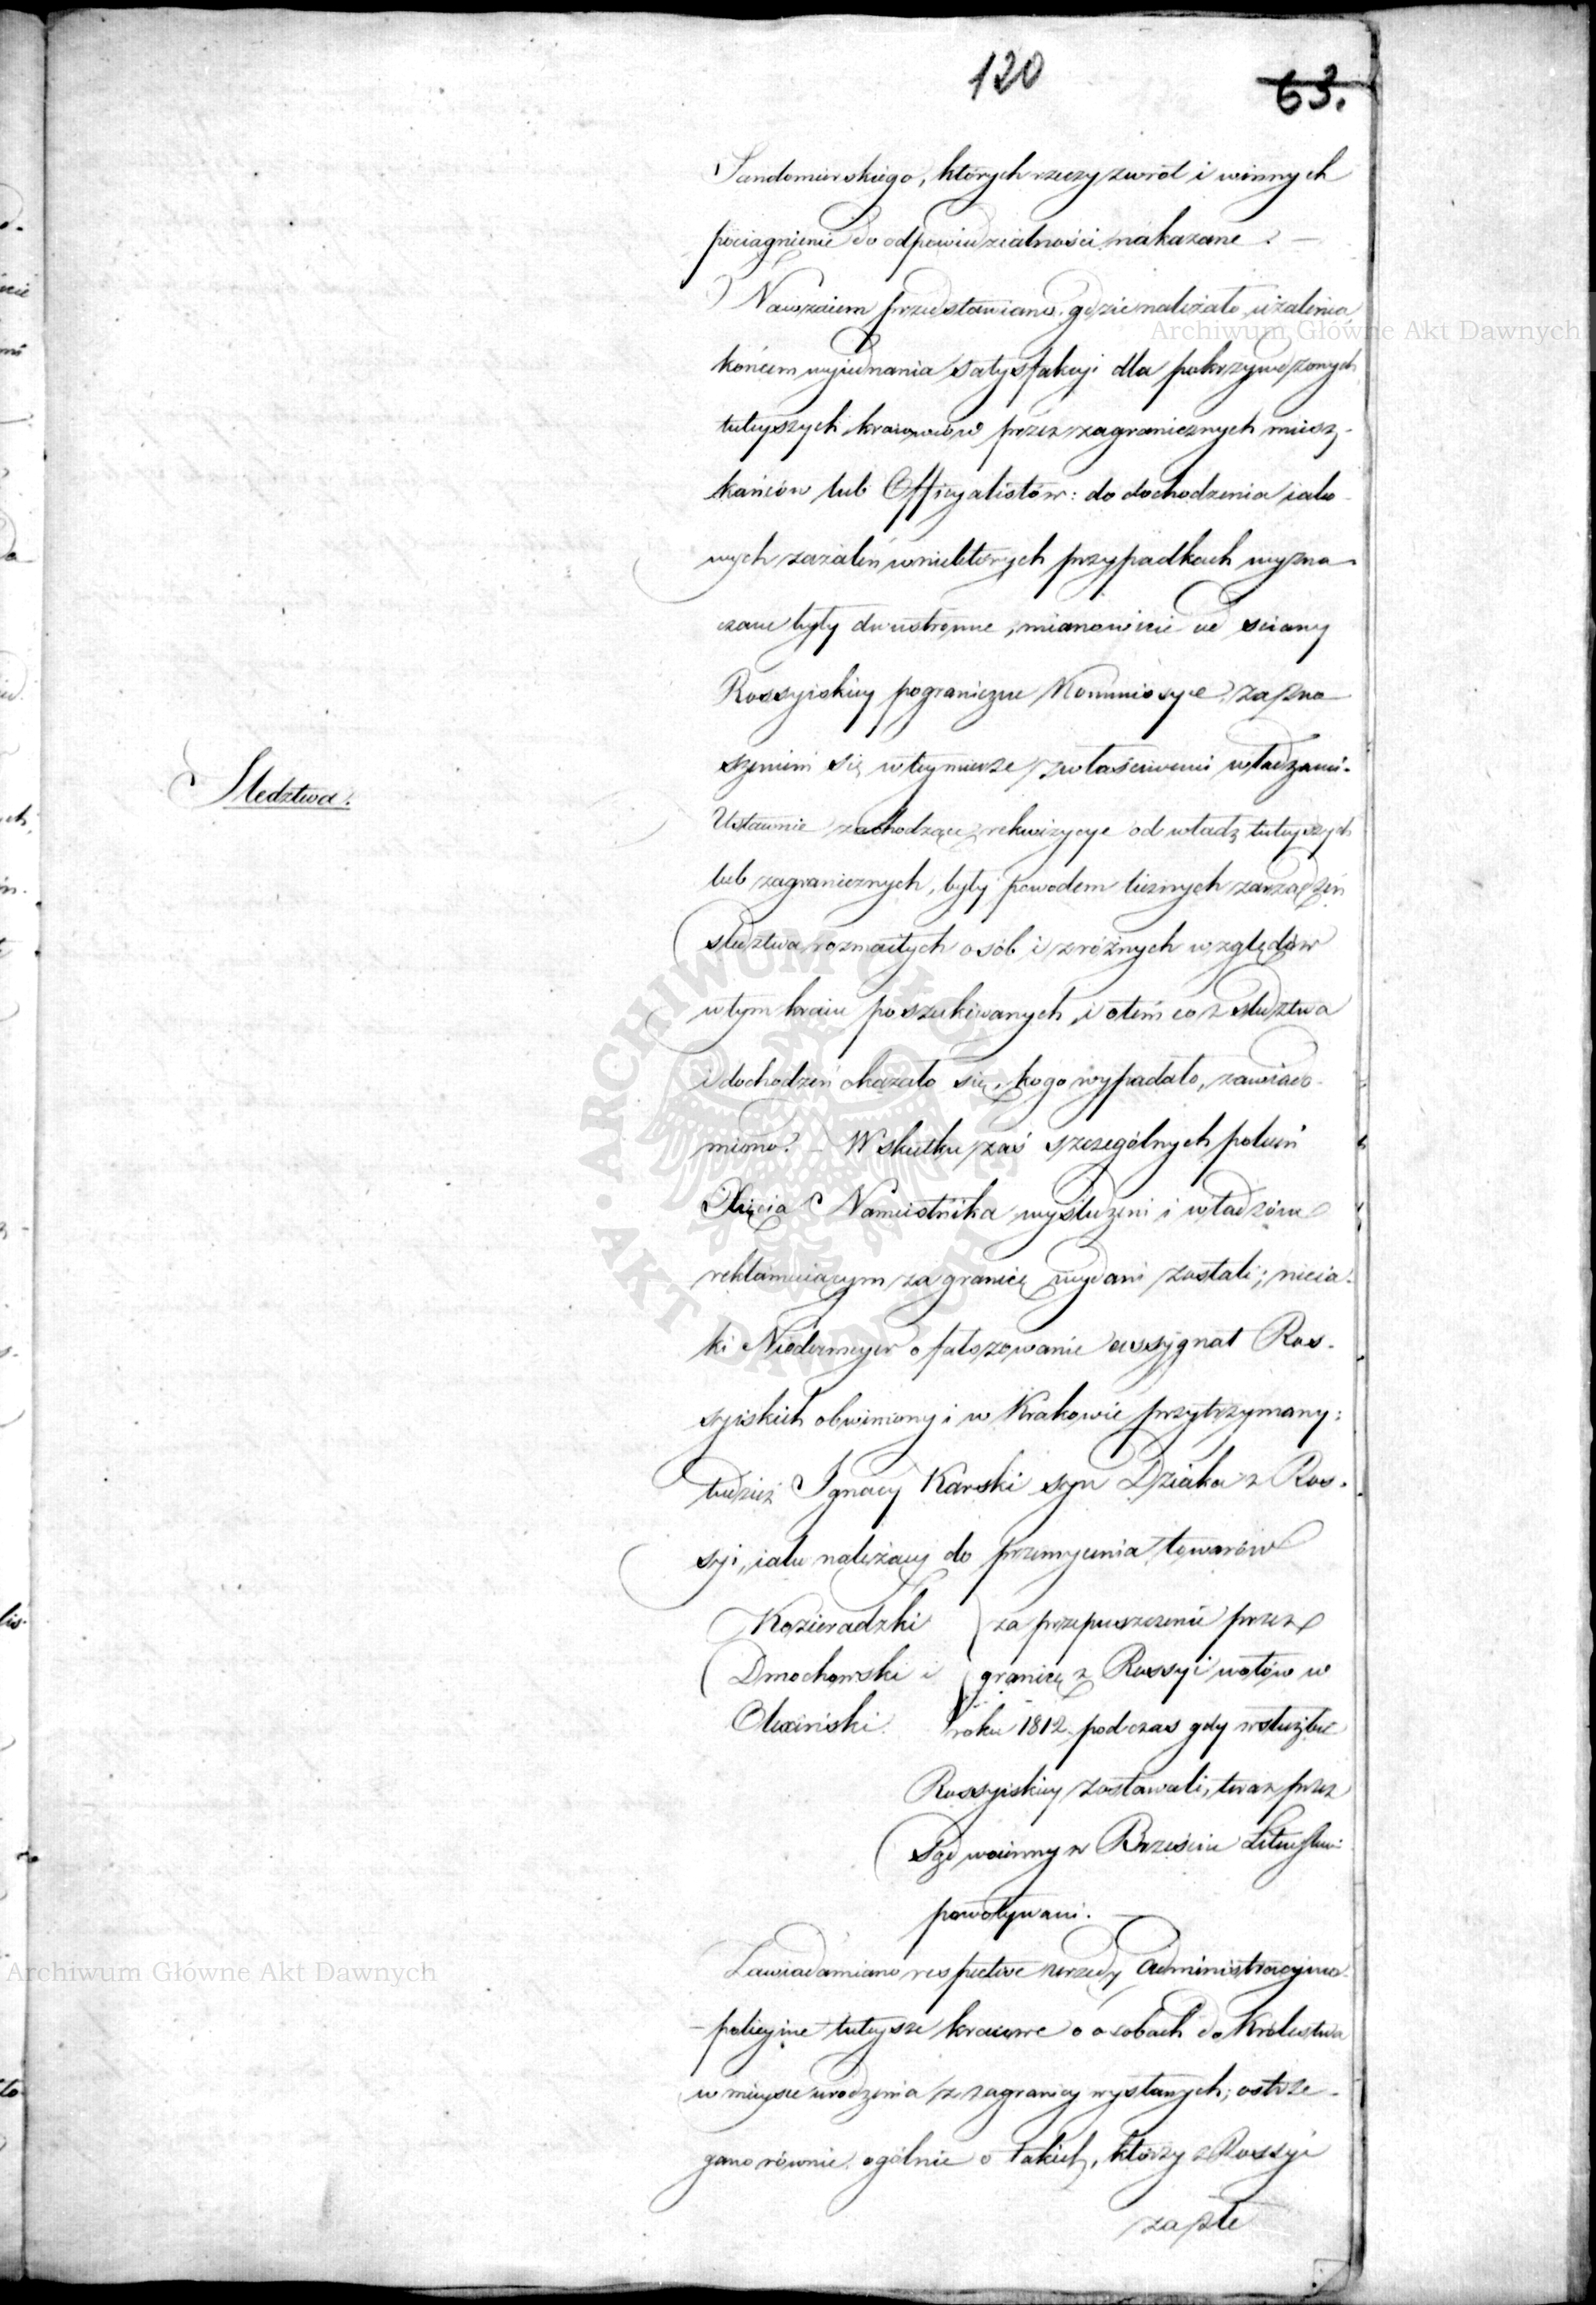 120
63.
Sandomierskiego, których rzeczy zwrot i winnych
pociągnienie do odpowiedzialności nakazane. —
Nawzaiem przedstawiano gdzie należało użalenia,
Archiwum Główne Akt Dawnych
końcem wyjednania satysfakcyi dla pokrzywdzonych
tuteyszych kraiowców przez zagranicznych miesz-
kańców lub Officyalistów: do dochodzenia iako-
wych zażaleń w niektórych przypadkach wyzna-
czane były dwustronne, mianowicie od sciany
Rossyiskiey pograniczne Kommissye, za zno-
szeniem się w teymierze z właściwemi władzami.
Sledztwa.
Ustawnie zachodzące rekwizycye od władz tuteyszych
lub zagranicznych, były powodem licznych zarządzeń
śledztwa rozmaitych osób i z różnych względów
w tym kraiu poszukiwanych, i o tem co z śledztwa
i dochodzeń okazało się, kogo wypadało, zawiado-
miono. — W skutku zaś szczególnych poleceń
Xięcia Namiestnika wyśledzeni i władzom
reklamuiącym za granicę wydani zostali; nieia-
ki Niedermeyer o fałszowanie assygnat Ros-
syiskich obwiniony i w Krakowie przytrzymany;
tudzież Ignacy Karski syn Dziaka z Ros-
syi, iako należący do przemycenia towarów
Kozieradzki
Dmochowski i
Olexiński.
za przepuszczenie przez
granicę z Rossyi wołów w
roku 1812 podczas gdy w służbie
Rossyiskiey zostawali, teraz przez
Sąd woienny w Brześciu Litewskim
powoływani. —
Zawiadamiano respective urzędy Administracyjno-
Archiwum Główne Akt Dawnych
- policyine tuteysze kraiowe o osobach do Królestwa
w mieysce urodzenia z zagranicy wysłanych; ostrze-
gano równie ogólnie o takich, którzy z Rossyi
za złe
ARCHIWUM GŁÓWNE · AKT DAWNYCH